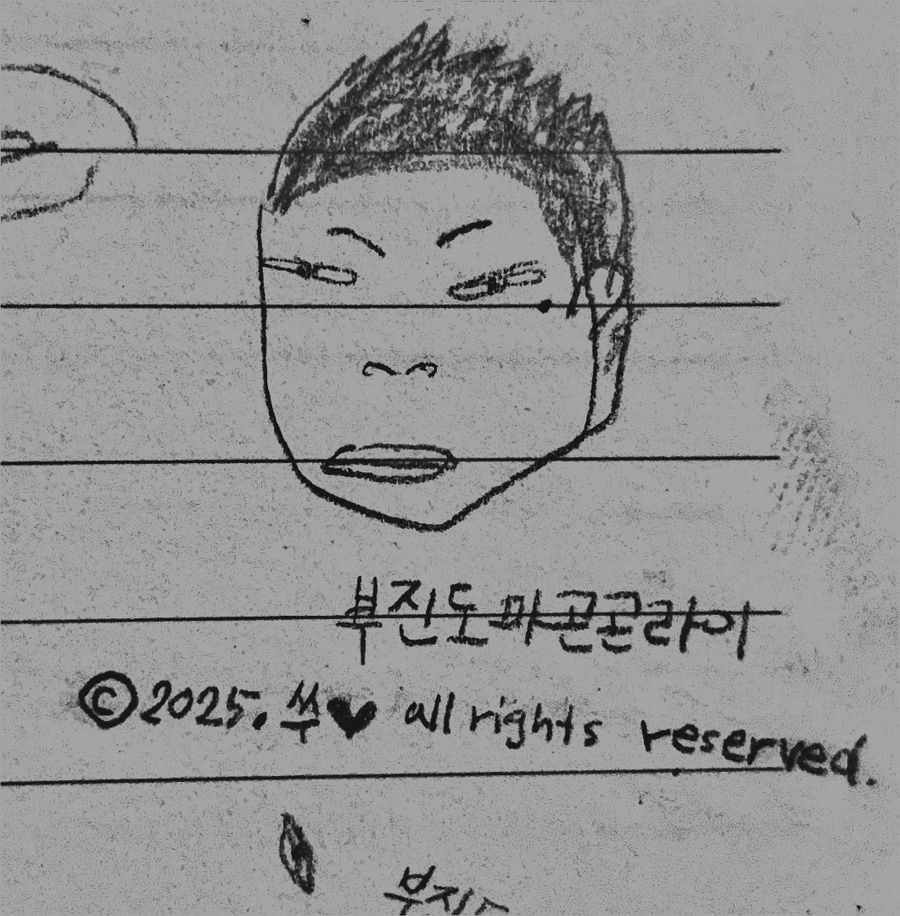 부진도파곤곤라이
©2025. 쑤♥ all rights reserved.
부진도